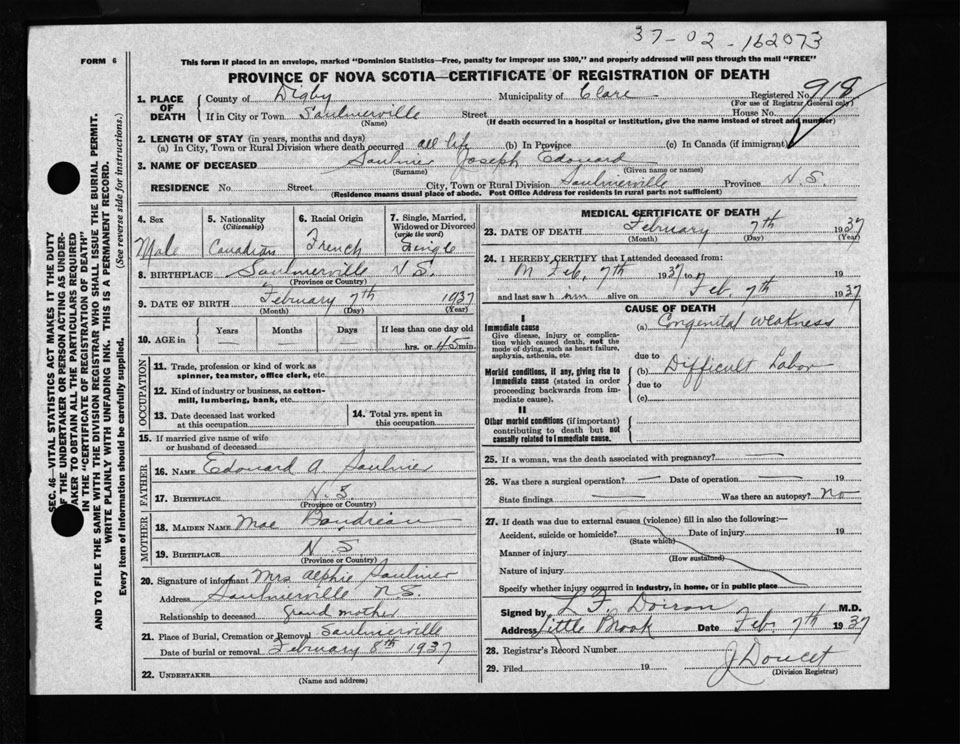 37-02-162073
FORM 6
This form if placed in an envelope, marked "Dominion Statistics—Free, penalty for improper use $300," and properly addressed will pass through the mail "FREE"
PROVINCE OF NOVA SCOTIA—CERTIFICATE OF REGISTRATION OF DEATH
SEC. 46—VITAL STATISTICS ACT MAKES IT THE DUTY
OF THE UNDERTAKER OR PERSON ACTING AS UNDER-
TAKER TO OBTAIN ALL THE PARTICULARS REQUIRED
IN THE "CERTIFICATE OF REGISTRATION OF DEATH"
AND TO FILE THE SAME WITH THE DIVISION REGISTRAR WHO SHALL ISSUE THE BURIAL PERMIT.
WRITE PLAINLY WITH UNFADING INK. THIS IS A PERMANENT RECORD.
Every item of information should be carefully supplied. (See reverse side for instructions.)
1. PLACE OF DEATH County of Digby Municipality of Clare Registered No. 918
(For use of Registrar General only)
If in City or Town Saulnierville Street House No.
(Name) (If death occurred in a hospital or institution, give the name instead of street and number)
2. LENGTH OF STAY (in years, months and days)
(a) In City, Town or Rural Division where death occurred all life (b) In Province (c) In Canada (if immigrant)
3. NAME OF DECEASED Saulnier Joseph Edouard
(Surname) (Given name or names)
RESIDENCE No. Street City, Town or Rural Division Saulnierville Province N.S.
(Residence means usual place of abode. Post Office Address for residents in rural parts not sufficient)
4. Sex 5. Nationality (Citizenship) 6. Racial Origin 7. Single, Married, Widowed or Divorced (write the word)
Male Canadian French Single
8. BIRTHPLACE Saulnierville N.S.
(Province or Country)
9. DATE OF BIRTH February 7th 1937
(Month) (Day) (Year)
10. AGE in Years Months Days If less than one day old
hrs. or 45 min.
OCCUPATION
11. Trade, profession or kind of work as
spinner, teamster, office clerk, etc.
12. Kind of industry or business, as cotton-
mill, lumbering, bank, etc.
13. Date deceased last worked
at this occupation
14. Total yrs. spent in
this occupation
15. If married give name of wife
or husband of deceased
FATHER
16. NAME Edouard A. Saulnier
17. BIRTHPLACE N.S.
(Province or Country)
MOTHER
18. MAIDEN NAME Mae Boudreau
19. BIRTHPLACE N S
(Province or Country)
20. Signature of informant Mrs Alphie Saulnier
Address Saulnierville N.S.
Relationship to deceased Grand mother
21. Place of Burial, Cremation or Removal Saulnierville
Date of burial or removal February 8th 1937
22. UNDERTAKER
(Name and address)
MEDICAL CERTIFICATE OF DEATH
23. DATE OF DEATH February 7th 1937
(Month) (Day) (Year)
24. I HEREBY CERTIFY that I attended deceased from:
Feb. 7th 1937 19
and last saw h im alive on Feb 7th 1937
CAUSE OF DEATH
I
Immediate cause
Give disease, injury or complica-
tion which caused death, not the
mode of dying, such as heart failure,
asphyxia, asthenia, etc.
(a) Congenital weakness
due to
Morbid conditions, if any, giving rise to
immediate cause (stated in order
proceeding backwards from im-
mediate cause).
(b) Difficult Labor
due to
(c)
II
Other morbid conditions (if important)
contributing to death but not
causally related to immediate cause.
25. If a woman, was the death associated with pregnancy?
26. Was there a surgical operation? Date of operation 19
State findings Was there an autopsy? No
27. If death was due to external causes (violence) fill in also the following:—
Accident, suicide or homicide? Date of injury 19
(State which)
Manner of injury
(How sustained)
Nature of injury
Specify whether injury occurred in industry, in home, or in public place
Signed by L. F. Doiron M.D.
Address Little Brook Date Feb 7th 1937
28. Registrar's Record Number
29. Filed 19 J Doucet
(Division Registrar)